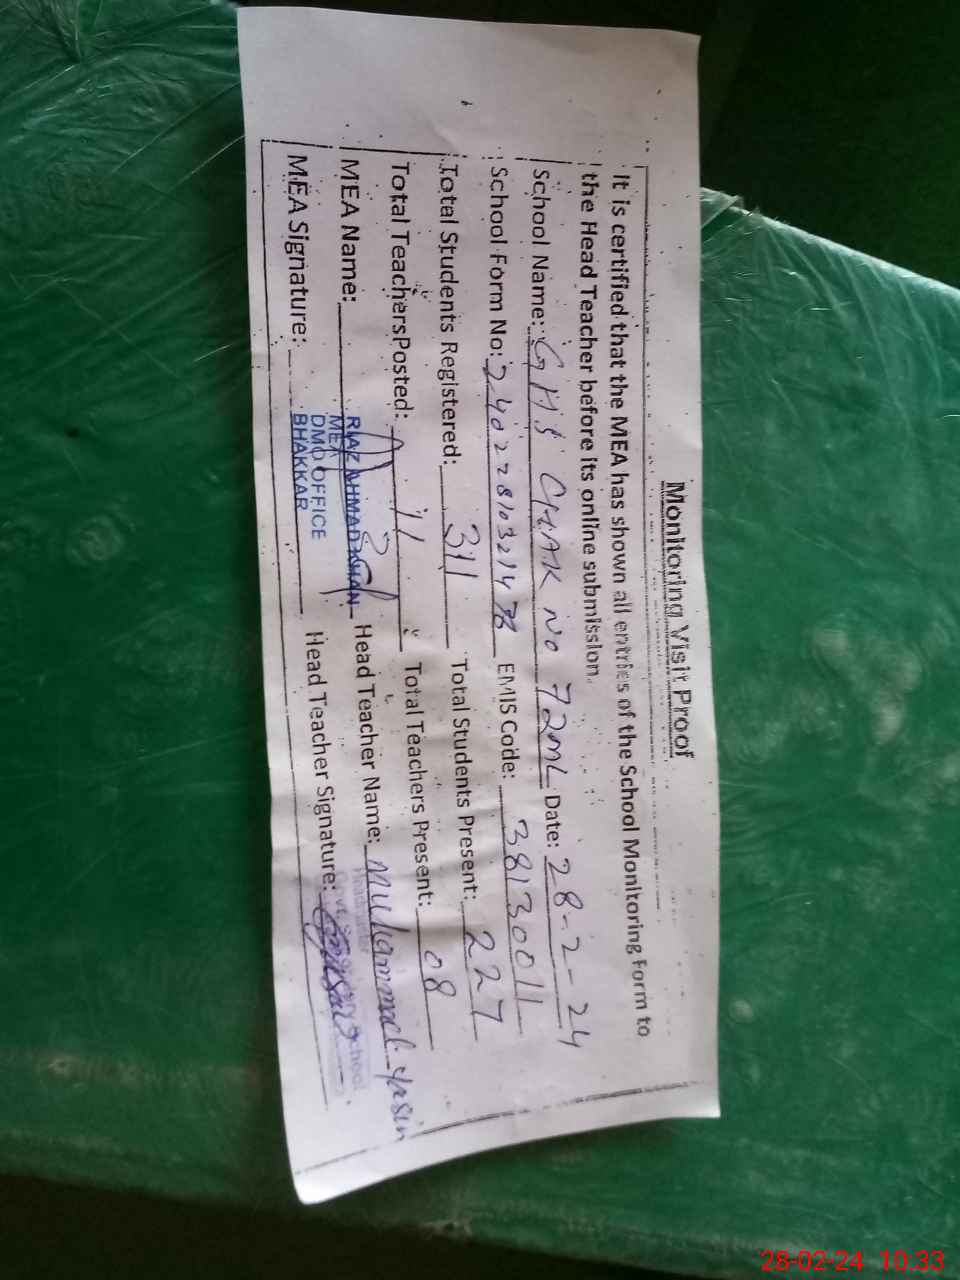 Monitoring Visit Proof
It is certified that the MEA has shown all entries of the School Monitoring Form to
the Head Teacher before its online submission.
School Name: GHS CHAK NO 72ML Date: 28-2-24
School Form No: EMIS Code: 38130011
Total Students Registered: 311 Total Students Present: 227
Total Teachers Posted: 11 Total Teachers Present: 08
MEA Name: RIAZ AHMAD KHAN Head Teacher Name: Muhammad Yasin
MEA
DMO OFFICE
BHAKKAR
Headmaster
MEA Signature: Head Teacher Signature:
28-02-24 10:33